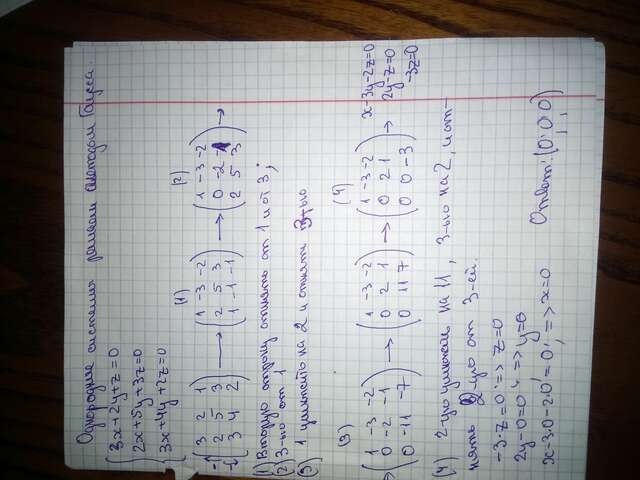 Однородные системы решаем методом Гаусса.
{ 3x+2y+z=0
2x+5y+3z=0
3x+4y+2z=0
(1) (2)
(3 2 1 / 2 5 3 / 3 4 2) → (1 -3 -2 / 2 5 3 / 1 -1 -1) → (1 -3 -2 / 0 -2 -1 / 2 5 3) →
1) Вторую строку отнять от 1 и от 3;
2) 3-ью от 1
3) 1 умножить на 2 и отнять 3-ью
(3) (4)
→ (1 -3 -2 / 0 -2 -1 / 0 -11 -7) → (1 -3 -2 / 0 2 1 / 0 11 7) → (1 -3 -2 / 0 2 1 / 0 0 -3) → x-3y-2z=0
2y-z=0
-3z=0
(4) 2-ую умножим на 11, 3-ью на 2, и от-
нять 2-ую от 3-ей.
-3·z=0 => z=0
2y-0=0; => y=0
x-3·0-2·0=0; => x=0 Ответ: (0; 0; 0)